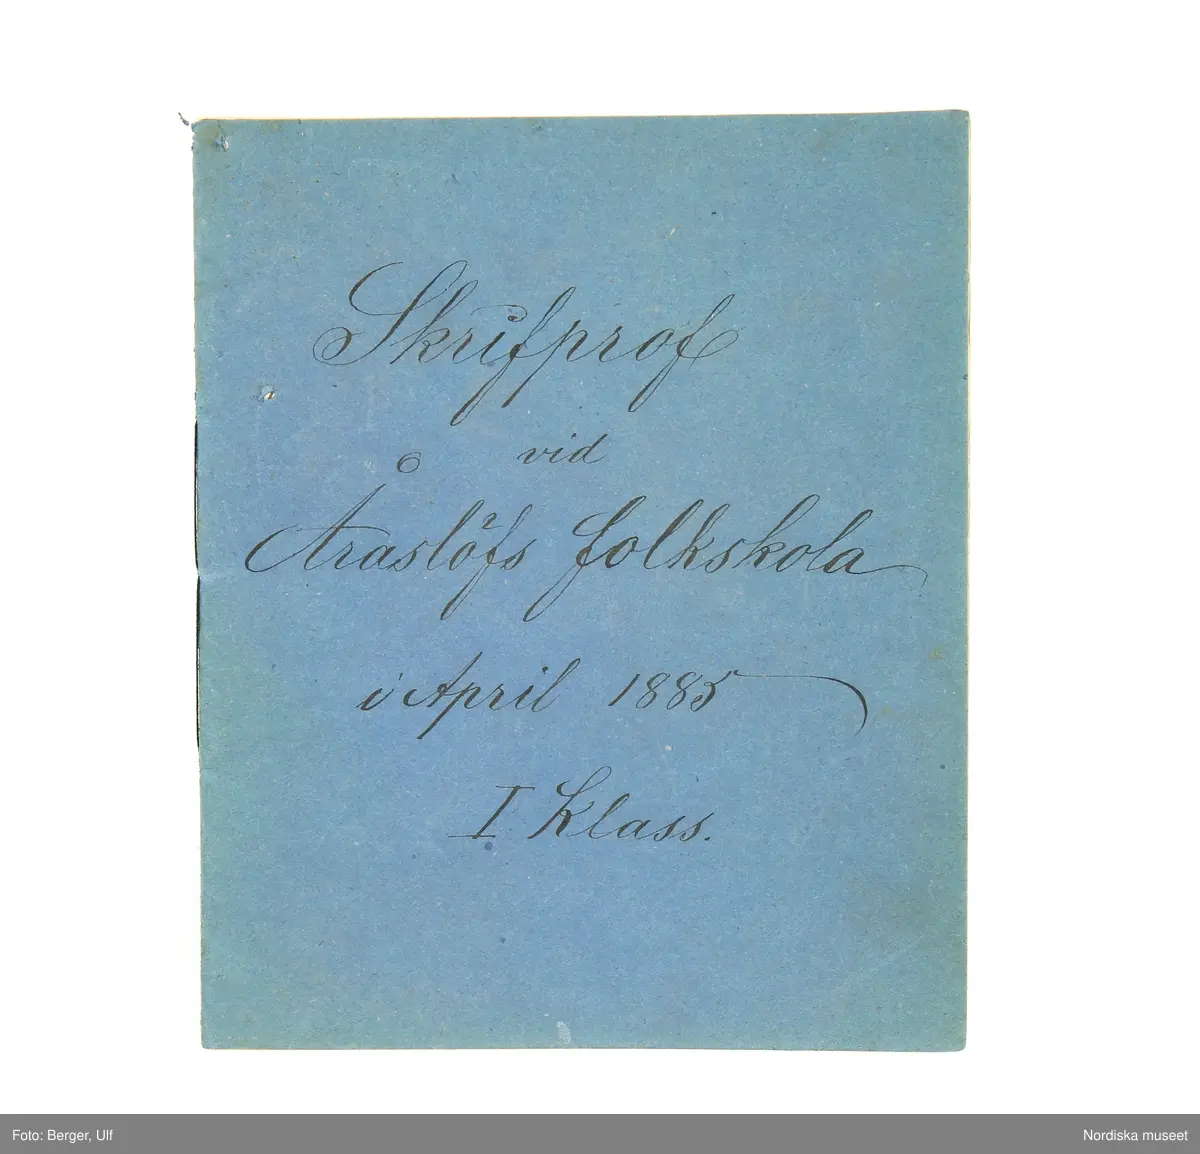 Skrifprof
vid
Åraslöfs folkskola
i April 1885
I Klass.
Foto: Berger, Ulf
Nordiska museet